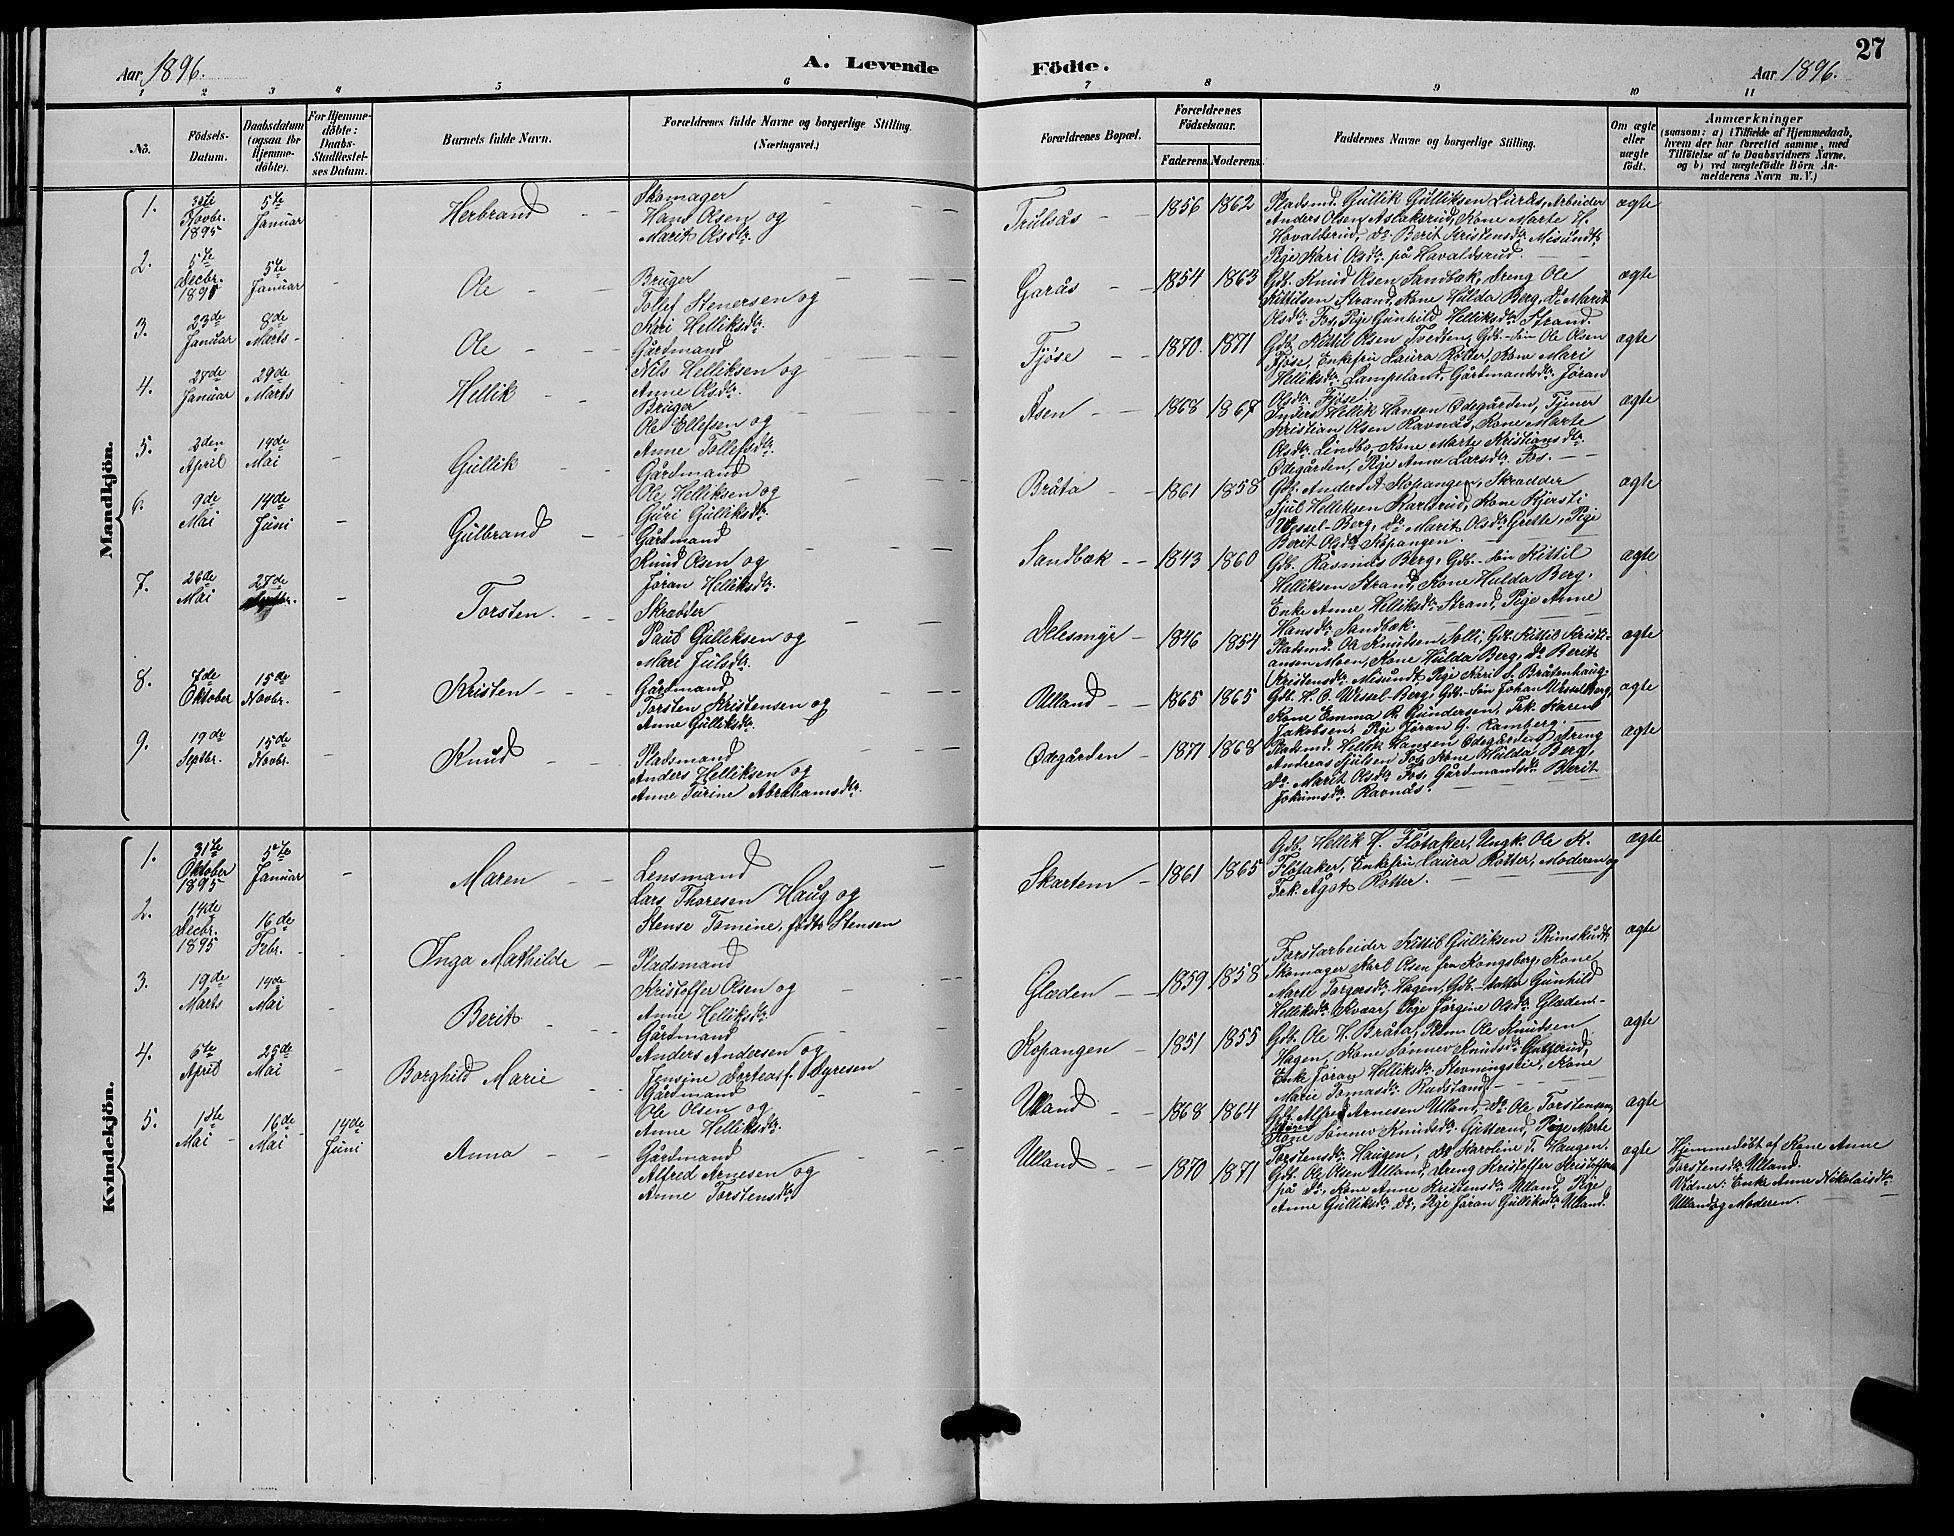 Aar 1896.
A. Levende
Födte.
Aar 1896.
27
1 2 3 4 5 6 7 8 9 10 11
No.
Födsels-
Datum.
Daabsdatum
(ogsaa for
Hjemme-
döbte).
For Hjemme-
döbte:
Daabs-
Stadfæstel-
ses Datum.
Barnets fulde Navn.
Forældrenes fulde Navne og borgerlige Stilling.
(Næringsvei.)
Forældrenes Bopæl.
Forældrenes
Födselsaar.
Faderens. Moderens.
Faddernes Navne og borgerlige Stilling.
Om ægte
eller
uægte
födt.
Anmærkninger
(saasom: a) i Tilfælde af Hjemmedaab,
hvem der har forrettet samme, med
Tilföielse af to Daabsvidners Navne,
og b) ved uægtefödte Börn An-
melderens Navn m. V.)
Mandkjön.
1.
Novbr.
1895
5te
Januar
Herbrand
Skomager
Hans Olsen og
Marit Olsdtr.
Trulsås
1856 1862
Pladsmd. Gullik Gulliksen Lurås, Arbeider
Anders Olsen Aslaksrud, Kone Marte H.
Havaldsrud, do. Berit Kristensdtr. Misundt,
Pige Kari Olsdtr. på Havaldsrud.
ægte
2.
5te
Decbr.
1895
5te
Januar
Ole
Bruger
Tollef Stenersen og
Kari Helliksdtr.
Garås
1854 1863
Gdb. Knud Olsen Sandbæk, Dreng Ole
Kittilsen Strand, Kone Hulda Berg, do. Marit
Olsdtr. Fos, Pige Gunhild Helliksdtr. Strand.
ægte
3.
23de
Januar
8de
Marts
Ole
Gårdmand
Nils Helliksen og
Anne Olsdtr.
Fjøse
1870. 1871
Gdb. Kittil Olsen Tvedten, Gdb.-søn Ole Olsen
Fjøse, Enkefru Laura Rotter, Kone Mari
Helliksdtr. Lampeland, Gårdmandsdtr. Jøran
Olsdtr. Fjøse.
ægte
4.
Januar
29de
Marts
Hellik
Bruger
Ole Ellefsen og
Anne Tollefsdtr.
Åsen
1868 1867
Inderst Hellik Hansen Ødegården, Tjener
Kristian Olsen Ravnås, Kone Marte
Olsdtr. Lindbo, Kone Marte Kristiansdtr.
Ødegården, Pige Anne Larsdtr. Fos.
ægte
5.
2den
April
14de
Mai
Gullik
Gårdmand
Ole Helliksen og
Guri Gulliksdtr.
Bråta
1861 1858
Gdb. Anders A. Kopangen, Skrædder
Sjul Helliksen Karlsrud, Kone Kjersti
Wessel-Berg, do. Marit Olsdtr. Grette, Pige
Berit Olsdtr. Kopangen.
ægte
6.
9de
Mai
14de
Juni
Gulbrand
Gårdmand
Knud Olsen og
Jøran Helliksdtr.
Sandbæk
1843 1860
Gdb. Rasmus Berg, Gdb.-søn Kittil
Helliksen Strand, Kone Hulda Berg,
Enke Anne Helliksdtr. Strand, Pige Anne
Hansdtr. Sandbæk.
ægte
7.
26de
Mai
Torsten
Skrædder
Paul Gulliksen og
Mari Julsdtr.
Delesmyr
1846 1854
Pladsmd. Ole Knudsen Solli, Gdb. Kittil Kristi-
ansen Moen, Kone Hulda Berg, do. Berit
Kristensdtr. Misundt, Pige Kari S. Bråtenhaug.
ægte
8.
Oktober
15de
Novbr.
Kristen
Gårdmand
Torsten Kristensen og
Anne Gulliksdtr.
Ulland
1865 1865
Gdb. H. C. Wessel-Berg, Gdb.-søn Johan Wessel Berg,
Kone Emma R. Gundersen, Frk. Karen
Jakobsen, Pige Jøran G. Ramberg.
ægte
9.
19de
Septbr.
15de
Novbr.
Knud
Pladsmand
Anders Helliksen og
Anne Turine Abrahamsdtr.
Ødegården
1871 1868
Pladsmd. Hellik Hansen Ødegården, Dreng
Andreas Sjulsen Fos, Kone Hulda Berg,
do. Marit Olsdtr. Fos, Gårdmandsdtr. Berit
Jokumsdtr. Ravnås.
ægte
Kvindekjön.
1.
31te
Oktober
1895
5te
Januar
Maren
Lensmand
Lars Thoresen Haug og
Stense Tomine, født Stensen
Skartem
1861 1865
Gdb. Hellik H. Fløtaker, Ungk. Ole K.
Fløtaker, Enkefru Laura Rotter, Moderen og
Frk. Ågot Rotter.
ægte
2.
14de
Decbr.
1895
16de
Febr.
Inga Mathilde
Pladsmand
Kristoffer Olsen og
Anne Helliksdtr.
Glæden
1859 1858
Forstarbeider Kittil Gulliksen Primskudt,
Skomager Karl Olsen fra Kongsberg, Kone
Marte Torgersdtr. Hagen, Gdb.-datter Gunhild
Helliksdtr. Kvaar, Pige Jørgine Olsdtr. Glæden
ægte
3.
19de
Marts
14de
Mai
Berit
Gårdmand
Anders Andersen og
Jensine Dortea f. Dyresen
Kopangen
1851 1855
Gdb. Ole H. Bråta, Ole Knudsen
Hagen, Kone Sønnev Knudsdtr. Gutterud,
Enke Jøran Helliksdtr. Stevningstei, Kone
Marie Tomasdtr. Rudstand.
ægte
4.
6te
April
25de
Mai
Borghild Marie
Gårdmand
Ole Olsen og
Anne Helliksdtr.
Ulland
1868 1864
Gdb. Alfred Arnesen Ulland, do. Ole Torstensen
Kone Sønnev Knudsdtr. Gutterud, Pige Marte
Torstensdtr. Haugen, do. Karoline T. Haugen.
ægte
5.
Mai
16de
Mai
14de
Juni
Anna
Gårdmand
Alfred Arnesen og
Anne Torstensdtr.
Ulland
1870 1871
Gdb. Ole Olsen Ulland, Dreng Kristoffer Kristoffersen
på do., Kone Anne Kristensdtr. Ulland, Pige
Anne Gulliksdtr. do., Pige Jøran Gulliksdtr. Ulland.
ægte
Hjemmedøbt af Kone Anne
Torstensdtr. Ulland.
Vidner: Enke Anne Nikolaisdtr.
Ulland og Moderen.